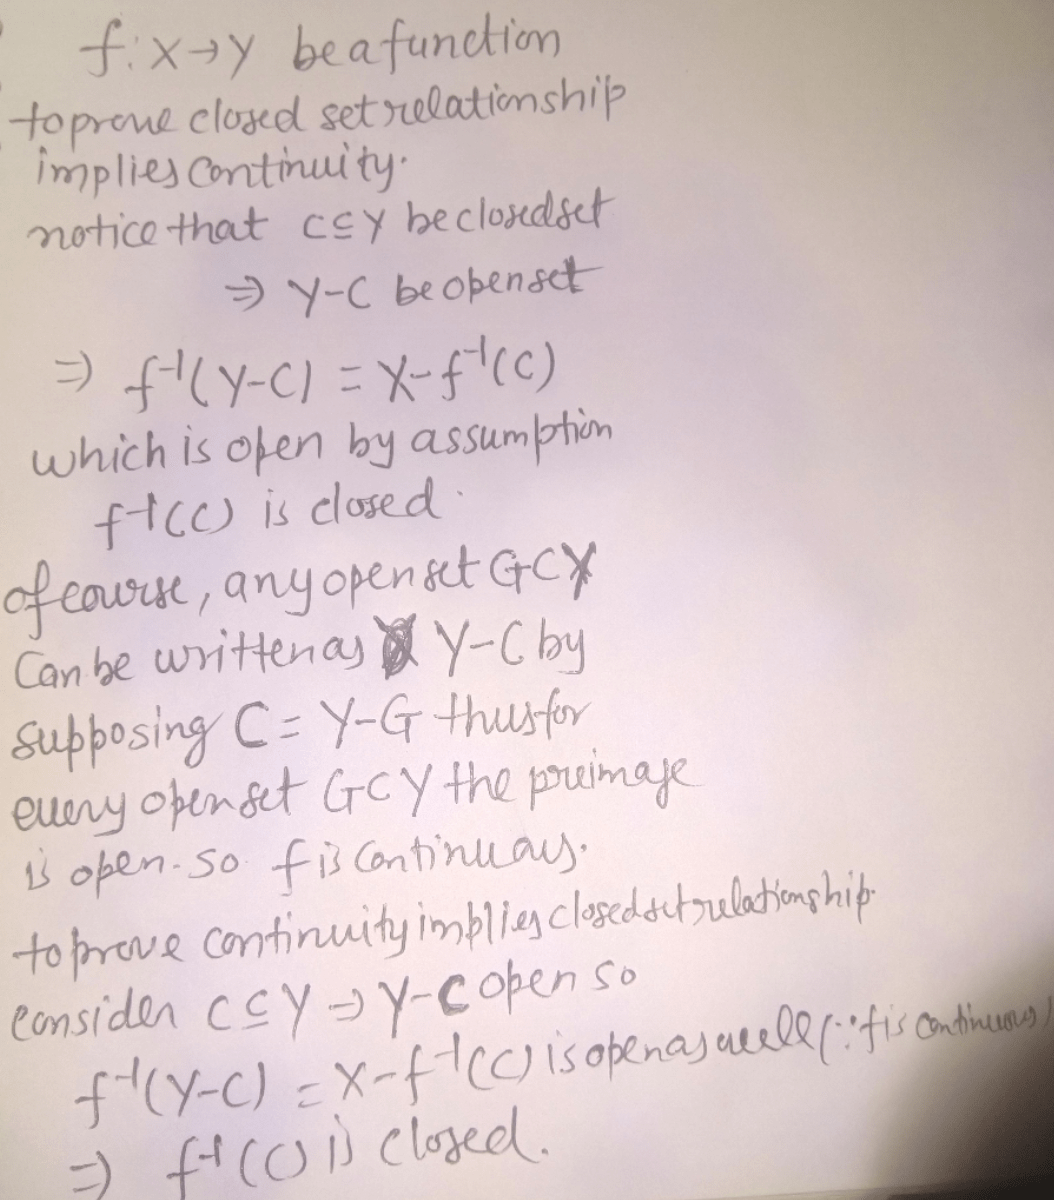 f: X→Y be a function
to prove closed set relationship
implies continuity.
notice that C⊆Y be closed set
⇒ Y-C be open set
⇒ f⁻¹(Y-C) = X-f⁻¹(C)
which is open by assumption
f⁻¹(C) is closed.
of course, any open set G⊂Y
Can be written as Y-C by
supposing C = Y-G thus for
every open set G⊂Y the preimage
is open. so f is Continuous.
to prove continuity implies closed set relationship.
consider C⊆Y ⇒ Y-C open so
f⁻¹(Y-C) = X-f⁻¹(C) is open as well (∵ f is continuous)
⇒ f⁻¹(C) is closed.